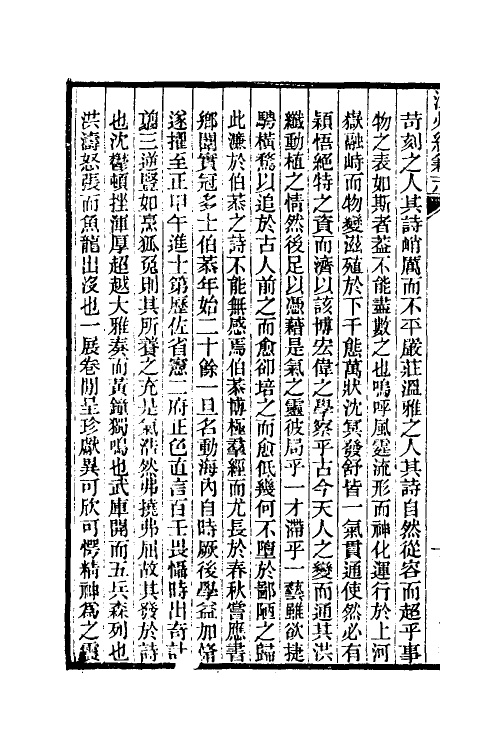 苛刻之人其詩峭厲而不平嚴莊溫雅之人其詩自然從容而超乎事
物之表如斯者葢不能盡數之也嗚呼風霆流形而神化運行於上河
嶽融峙而物變滋殖於下千態萬狀沈冥發舒皆一氣貫通使然必有
穎悟絕特之資而濟以該博宏偉之學察乎古今天人之變而通其洪
纖動植之情然後足以憑藉是氣之靈彼局乎一才滯乎一藝雖欲捷
騁橫騖以追於古人前之而愈卻培之而愈低幾何不墮於鄙陋之歸
此濂於伯恭之詩不能無感焉伯恭博極羣經而尤長於春秋嘗應書
鄉闈實冠多士伯恭年始二十餘一旦名動海內自時厥後學益加脩
遂擢至正甲午進士第歷佐省憲二府正色直言百壬畏懾時出奇計
翦三逆豎如烹狐兔則其所養之充是氣浩然弗撓弗屈故其發於詩
也沈鬱頓挫渾厚超越大雅奏而黃鐘獨鳴也武庫開而五兵森列也
洪濤怒張而魚龍出沒也一展卷閒呈珍獻異可欣可愕精神爲之震